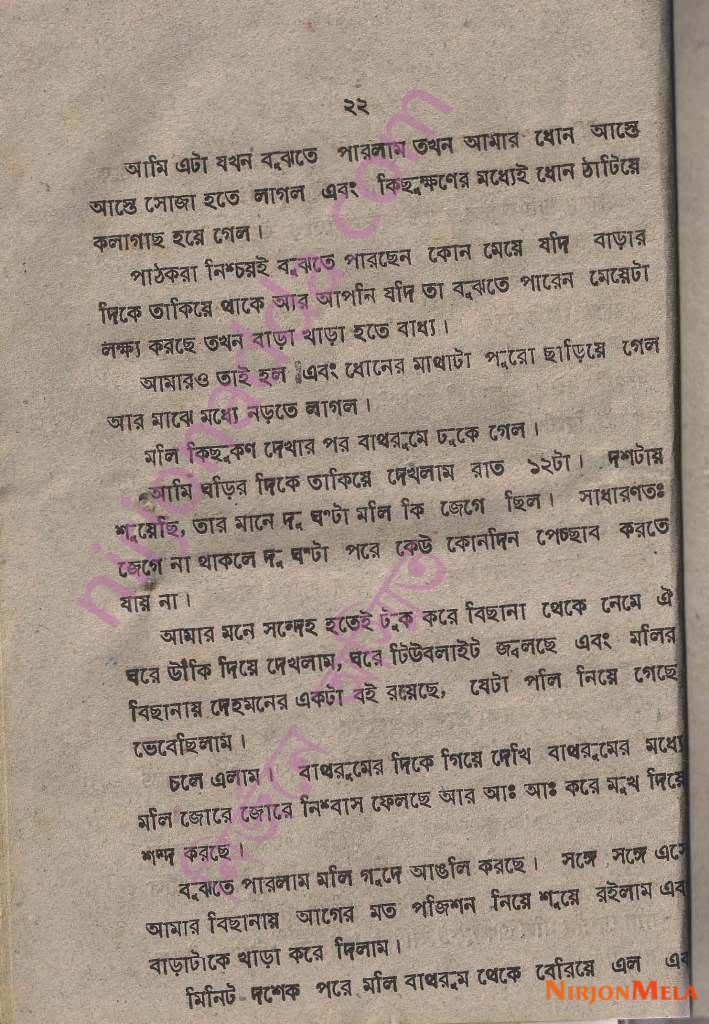 ২২
আমি এটা যখন বুঝতে পারলাম তখন আমার ধোন আস্তে
আস্তে সোজা হতে লাগল এবং কিছুক্ষণের মধ্যেই ধোন ঠাটিয়ে
কলাগাছ হয়ে গেল।
পাঠকরা নিশ্চয়ই বুঝতে পারছেন কোন মেয়ে যদি বাড়ার
দিকে তাকিয়ে থাকে আর আপনি যদি তা বুঝতে পারেন মেয়েটা
লক্ষ্য করছে তখন বাড়া খাড়া হতে বাধ্য।
আমারও তাই হল এবং ধোনের মাথাটা পুরো ছাড়িয়ে গেল
আর মাঝে মধ্যে নড়তে লাগল।
মলি কিছুক্ষণ দেখার পর বাথরুমে ঢুকে গেল।
আমি ঘড়ির দিকে তাকিয়ে দেখলাম রাত ১২টা। দশটায়
শুয়েছি, তার মানে দু ঘণ্টা মলি কি জেগে ছিল। সাধারণতঃ
জেগে না থাকলে দু ঘণ্টা পরে কেউ কোনদিন পেচ্ছাব করতে
যায় না।
আমার মনে সন্দেহ হতেই টুক করে বিছানা থেকে নেমে ঐ
ঘরে উঁকি দিয়ে দেখলাম, ঘরে টিউবলাইট জ্বলছে এবং মলির
বিছানায় দেহমনের একটা বই রয়েছে, যেটা পলি নিয়ে গেছে
ভেবেছিলাম।
চলে এলাম। বাথরুমের দিকে গিয়ে দেখি বাথরুমের মধ্যে
মলি জোরে জোরে নিশ্বাস ফেলছে আর আঃ আঃ করে মুখ দিয়ে
শব্দ করছে।
বুঝতে পারলাম মলি গুদে আঙলি করছে। সঙ্গে সঙ্গে এসে
আমার বিছানায় আগের মত পজিশন নিয়ে শুয়ে রইলাম এব
বাড়াটাকে খাড়া করে দিলাম।
মিনিট দশেক পরে মলি বাথরুম থেকে বেরিয়ে এল এব
NIRJONMELA